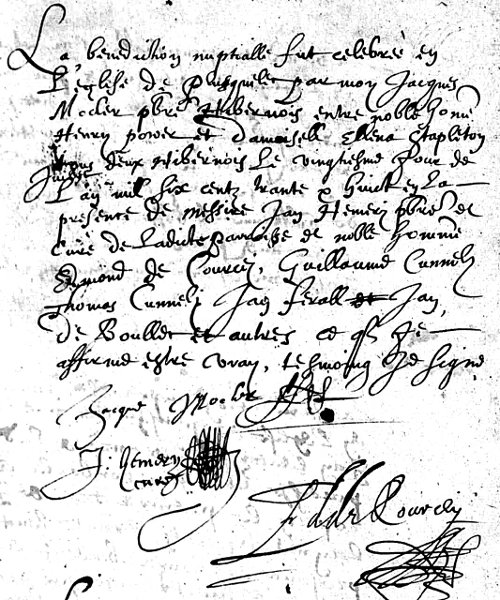 La, benediction nuptialle fut celebré en
L'eglise de Plusquelec par moy Jacques
Mocler pbre Hibernois entre noble home
Henry power et Damoisell Ellena Stapleton
tous deux Hibernois Le vingtiesme Jour de
Juillet
L'an mil six centz trante & huict en La
presence de messire Jan Hemery pbre et
curé de Ladicte paroisse de noble homme
Edmond de Courcy, Guillaume Cunnely
Thomas Cunnely Jaq ferall et Jan,
De Boullet et autres ce q Je
affirme estre vray, tesmoing Je signe
Jacque Mocler
J: Hemery
curé
Edd Courcy